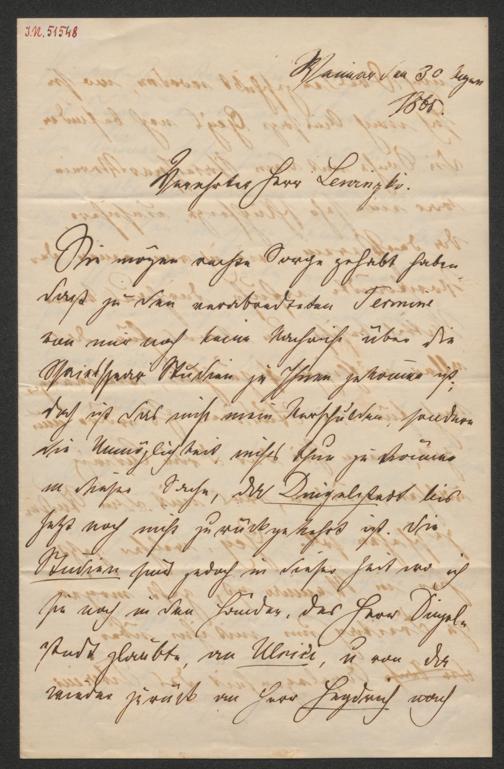 I.N. 51548
Weimar den 30 Augu
1865.
Verehrter Herr Lewinsky.
Sie mögen rechte Sorge gehabt haben
daß zu den verabredeten Termine
von mir noch keine Nachricht über die
Shakespear Studien zu Ihnen gekommen ist,
doch ist das nicht mein Verschulden sondern
die Unmöglichkeit nichts thun zu können
in dieser Sache, da Dingelstedt bis
jetzt noch nicht zurückgekehrt ist. Die
Studien sind jedoch in dieser Zeit wo ich
sie noch in den Händen des Herr Dingel-
stedt glaubte, an Ulrici, u von da
wieder zurück an Herr Heydrich nach